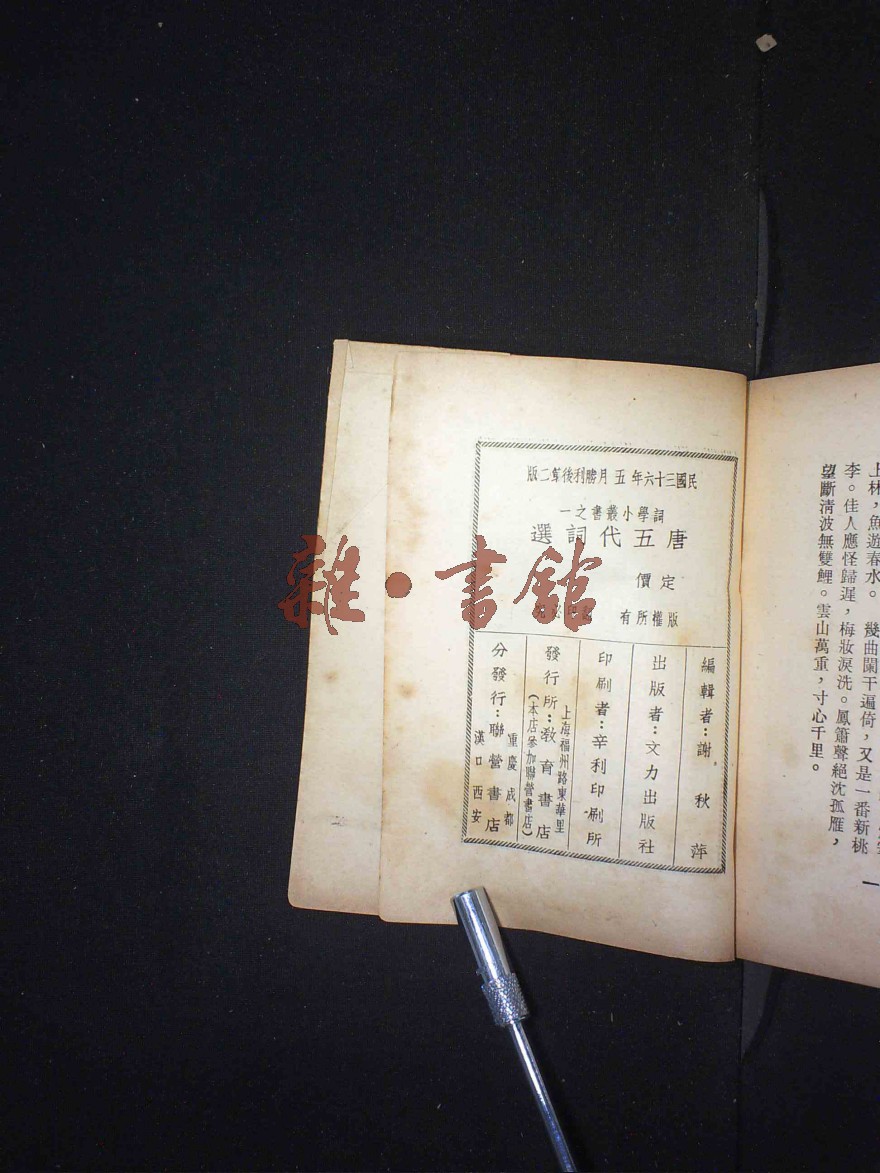 上林，魚遊春水。 幾曲闌干遍倚，又是一番新桃
李。佳人應怪歸遲，梅妝淚洗。鳳簫聲絕沈孤雁，
望斷淸波無雙鯉。雲山萬重，寸心千里。
一
民國三十六年五月勝利後第二版
詞學小叢書之一
唐五代詞選
定價
版權所有
編輯者：謝秋萍
出版者：文力出版社
印刷者：辛利印刷所
上海福州路東華里
發行所：敎育書店
（本店參加聯營書店）
重慶成都
分發行：聯營書店
漢口西安
雜·書館